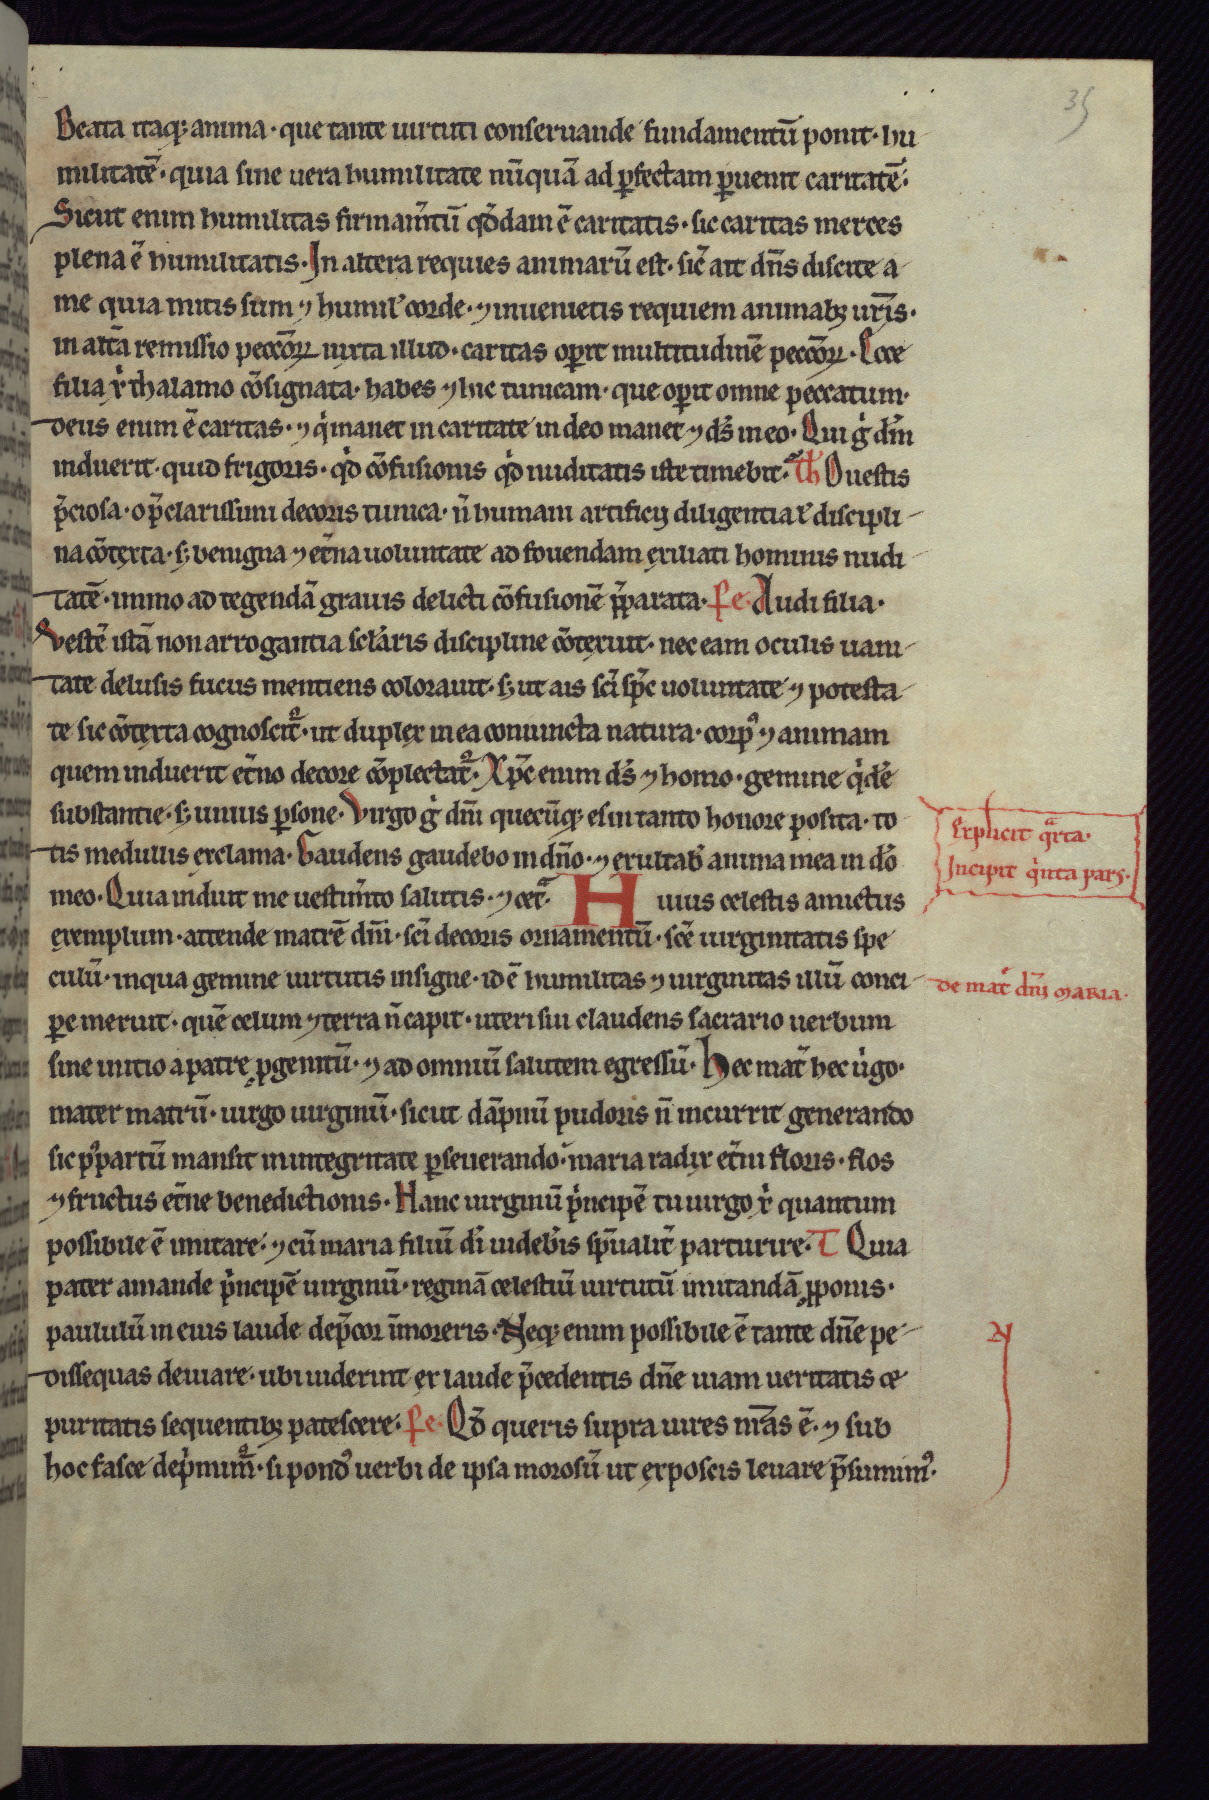 35
Beata itaq; anima · que tante uirtuti conseruande fundamentū ponit · hu
militatē · quia sine uera humilitate nūquā ad p̄fectam p̄uenit caritatē ·
Sicut enim humilitas firmam̄tū q̄dam ē caritatis · sic caritas merces
plena ē humilitatis · In altera requies animarū est · sic̄ ait dn̄s discite a
me quia mitis sum ⁊ humil' corde · ⁊ inuenietis requiem animab; ur̄is ·
in alt̄a remissio pecc̄oꝝ iuxta illud · caritas op̄it multitudinē pecc̄oꝝ · Ecce
filia x̄ thalamo c̄osignata · habes ⁊ hic tunicam · que op̄it omne peccatum ·
deus enim ē caritas · ⁊ q̇ manet in caritate in deo manet ⁊ ds̄ in eo · Qui ġ dn̄m
induerit · quid frigoris · qd̄ c̄ofusionis qd̄ nuditatis iste timebit · Th O uestis
p̄ciosa · o p̄clarissimi decoris tunica · n̄ humani artificij diligentia ł discipli
na c̄otexta · s; benigna ⁊ et̄na uoluntate ad fouendam exiliati hominis nudi
tatē · immo ad tegendā grauis delicti c̄ofusionē p̄parata · Pe · Audi filia ·
Vestē istā non arrogantia sc̄laris discipline c̄otexuit · nec eam oculis uani
tate delusis fucus mentiens colorauit · s; ut ais sc̄i sp̄c uoluntate ⁊ potesta
te sic c̄otexta cognoscit̄ · ut duplex in ea coniuncta natura · corpꝰ ⁊ animam
quem induerit et̄no decore c̄oplectat̄ · Xp̄c enim ds̄ ⁊ homo · gemine q̇dē
substantie · s; unius p̄sone · Virgo ġ dn̄i quecūq; es in tanto honore posita · to
tis medullis exclama · Gaudens gaudebo in dn̄o · ⁊ exultab̄ anima mea in d̄o
meo · Quia induit me uestim̄to salutis · ⁊ cet̄a · Huius celestis amictus
exemplum · attende matrē dn̄i · sc̄i decoris ornamentū · sc̄e uirginitatis spe
culū · in qua gemine uirtutis insigne · id ē humilitas ⁊ uirginitas illū conci
pe meruit · quē celum ⁊ terra n̄ capit · uteri sui claudens sacrario uerbum
sine initio a patre p̄genitū · ⁊ ad omniū salutem egressū · Hec mat̄ hec u̇go ·
mater matrū · uirgo uirginū · sicut dāpnū pudoris n̄ incurrit generando
sic pꝰ partū mansit in integritate p̄seuerando · maria radix et̄ni floris · flos
⁊ fructus et̄ne benedictionis · Hanc uirginū p̄ncipē tu uirgo x̄ quantum
possibile ē imitare · ⁊ cū maria filiū di̇ uideb̄is sp̄ualit̄ parturire · T Quia
pater amande p̄ncipē uirginū · reginā celestiū uirtutū imitandā p̄ponis ·
paululū in eius laude dep̄cor īmoreris · Neq; enim possibile ē tante dn̄e pe
dissequas deuiare · ubi uiderint ex laude p̄cedentis dn̄e uiam ueritatis ce
puritatis sequentib; patescere · Pe · Qd̄ queris supra uires nr̄as ē · ⁊ sub
hoc fasce dep̄mim̄ · si pondꝰ uerbi de ipsa morosū ut exposcis leuare p̄sumimꝰ ·
Explicit q̄rta ·
Incipit q̇nta pars ·
de mat̄ dn̄i MARIA ·